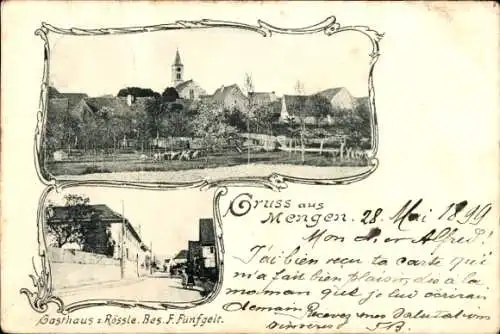 Gruss aus
Mengen.
28 Mai 1899
Mon cher Alfred!
J'ai bien reçu ta carte qui
m'a fait bien plaisir, dis à la
maman que je lui écrirai
demain Recevez mes Salutations
sincères
Gasthaus z. Rössle. Bes. F. Fünfgelt.